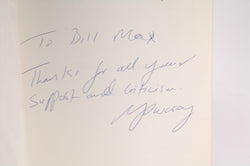 To Bill Max
Thanks for all your
support and criticism.